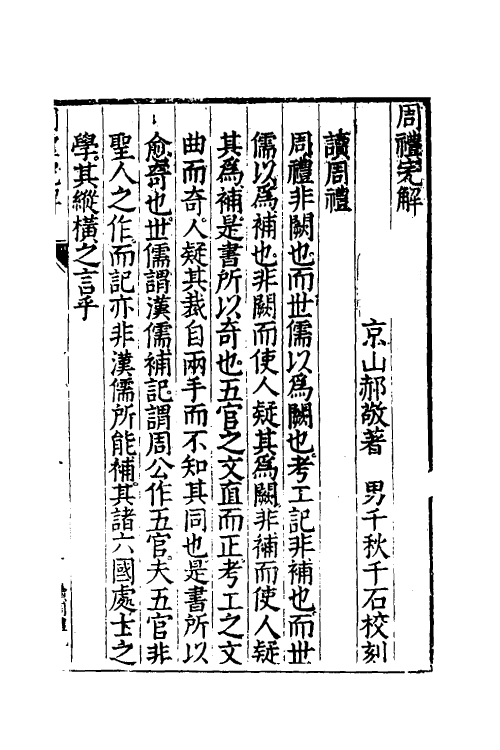 周禮完解
京山郝敬著　男千秋千石校刻
讀周禮
周禮非闕也而世儒以爲闕也考工記非補也而世
儒以爲補也非闕而使人疑其爲闕非補而使人疑
其爲補是書所以奇也五官之文直而正考工之文
曲而奇人疑其裁自兩手而不知其同也是書所以
愈奇也世儒謂漢儒補記謂周公作五官夫五官非
聖人之作而記亦非漢儒所能補其諸六國處士之
學其縱橫之言乎